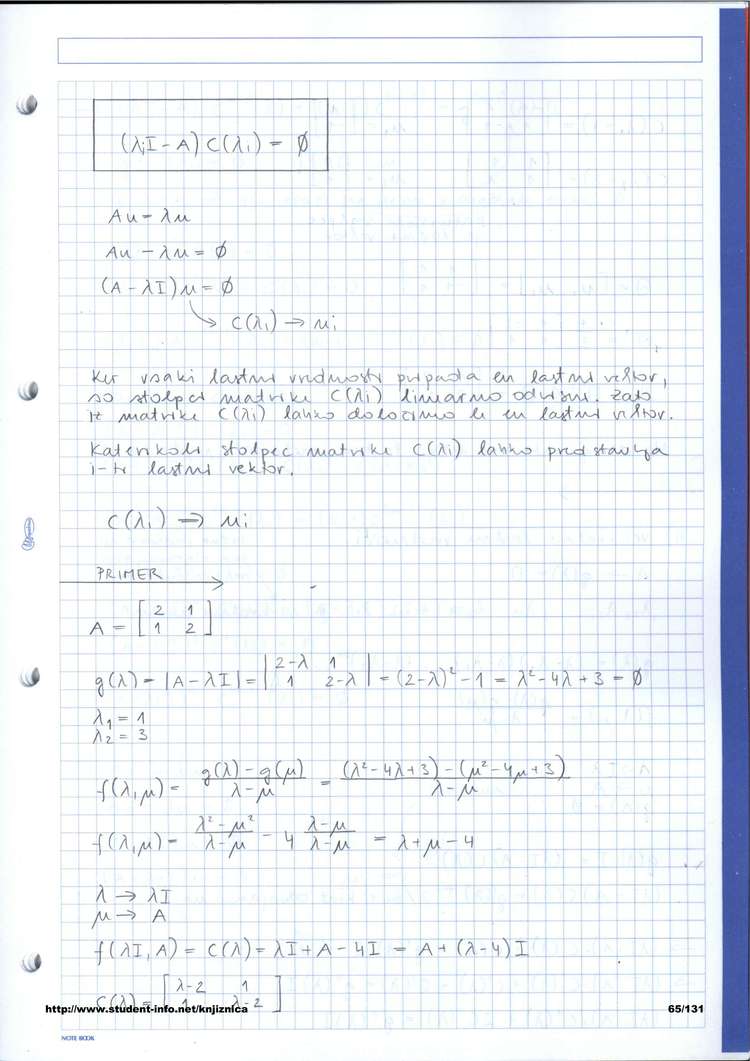 (λiI - A) C(λi) = ∅
Au = λu
Au - λu = ∅
(A - λI)u = ∅
C(λi) → ui
Ker vsaki lastni vrednosti pripada en lastni vektor,
so stolpci matrike C(λi) linearno odvisni. Zato
iz matrike C(λi) lahko določimo le en lastni vektor.
Katerikoli stolpec matrike C(λi) lahko predstavlja
i-ti lastni vektor.
C(λi) ⇒ ui
PRIMER
A = [2 1
1 2]
g(λ) = |A - λI| = |2-λ 1; 1 2-λ| = (2-λ)² - 1 = λ² - 4λ + 3 = ∅
λ1 = 1
λ2 = 3
f(λ,μ) = (g(λ) - g(μ))/(λ-μ) = ((λ²-4λ+3) - (μ²-4μ+3))/(λ-μ)
f(λ,μ) = (λ²-μ²)/(λ-μ) - 4 (λ-μ)/(λ-μ) = λ+μ-4
λ → λI
μ → A
f(λI, A) = C(λ) = λI + A - 4I = A + (λ-4)I
C(λ) = [λ-2 1
1 λ-2]
http://www.student-info.net/knjiznica 65/131
NOTE BOOK